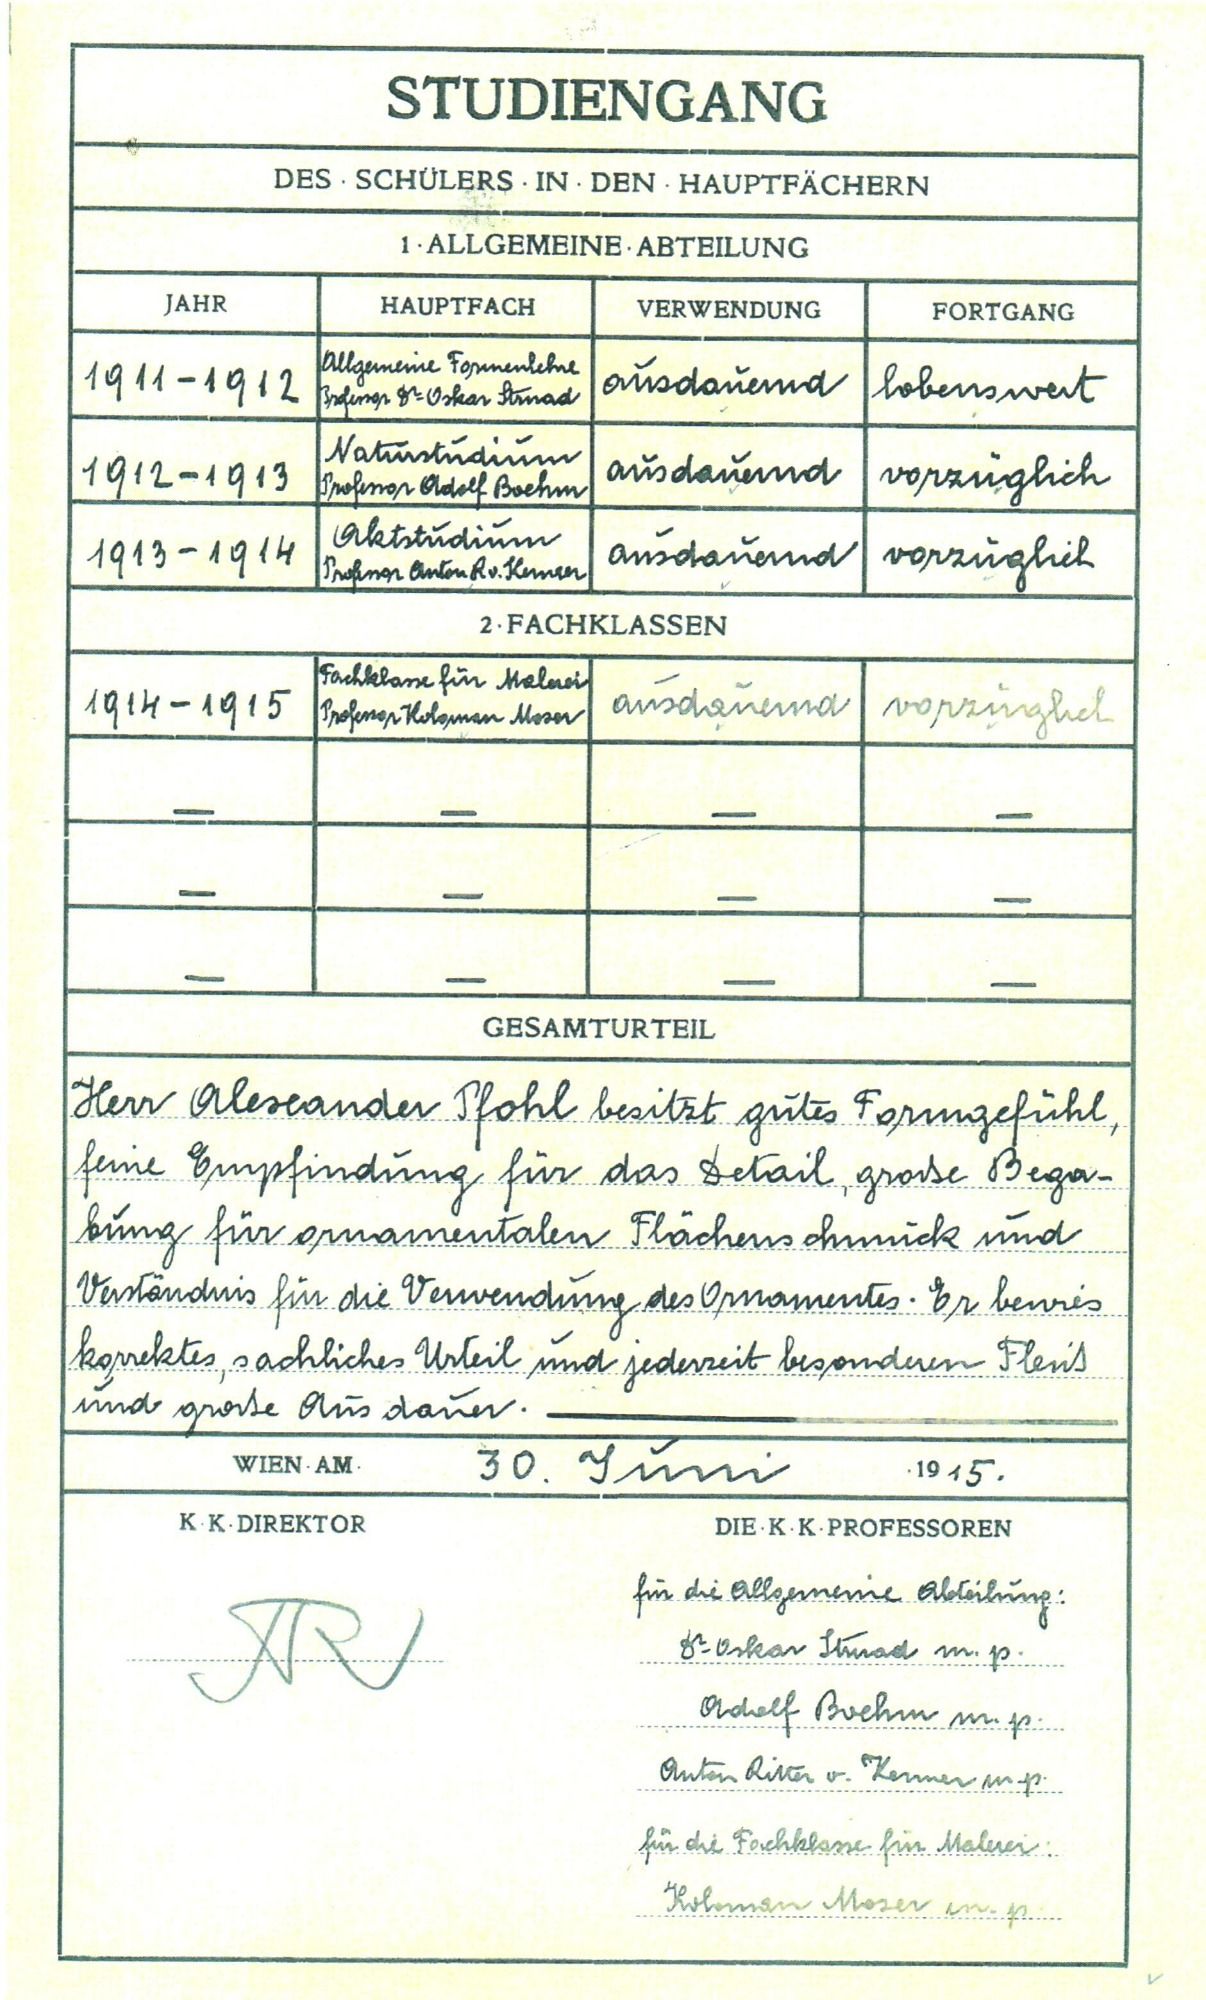 STUDIENGANG
DES · SCHÜLERS · IN · DEN · HAUPTFÄCHERN
1 · ALLGEMEINE · ABTEILUNG
JAHR HAUPTFACH VERWENDUNG FORTGANG
1911-1912 Allgemeine Formenlehre Professor Dr Oskar Strnad ausdauernd lobenswert
1912-1913 Naturstudium Professor Adolf Boehm ausdauernd vorzüglich
1913-1914 Aktstudium Professor Anton R. v. Kenner ausdauernd vorzüglich
2 · FACHKLASSEN
1914-1915 Fachklasse für Malerei Professor Koloman Moser ausdauernd vorzüglich
— — — —
— — — —
— — — —
GESAMTURTEIL
Herr Alexander Pfohl besitzt gutes Formgefühl,
feine Empfindung für das Detail, große Bega-
bung für ornamentalen Flächenschmuck und
Verständnis für die Verwendung des Ornamentes. Er bewies
korrektes, sachliches Urteil und jederzeit besonderen Fleiß
und große Ausdauer.
WIEN · AM · 30. Juni · 1915.
K · K · DIREKTOR DIE · K · K · PROFESSOREN
für die Allgemeine Abteilung:
Dr Oskar Strnad m. p.
Adolf Boehm m. p.
Anton Ritter v. Kenner m. p.
für die Fachklasse für Malerei:
Koloman Moser m. p.